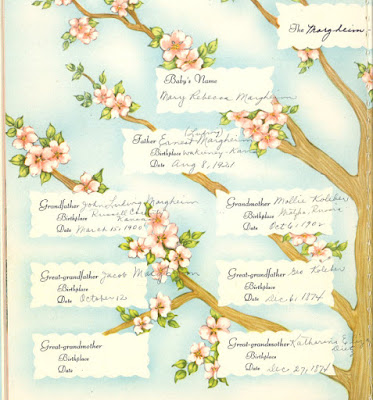 The Margheim
Baby's Name
Mary Rebecca Margheim
(Ludwig)
Father Ernest Margheim
Birthplace Wakeeney, Kan
Date Aug 8, 1921
Grandfather John Ludwig Margheim
Birthplace Russell Co.
Kansas
Date March 15, 1900
Grandmother Mollie Koleber
Birthplace Russia
Date Oct 6, 1902
Great-grandfather Jacob
Birthplace
Date October 12
Great-grandfather Geo Koleber
Birthplace
Date Dec 6, 1874
Great-grandmother
Birthplace
Date
Great-grandmother Katherine
Birthplace
Date Dec 27, 1874